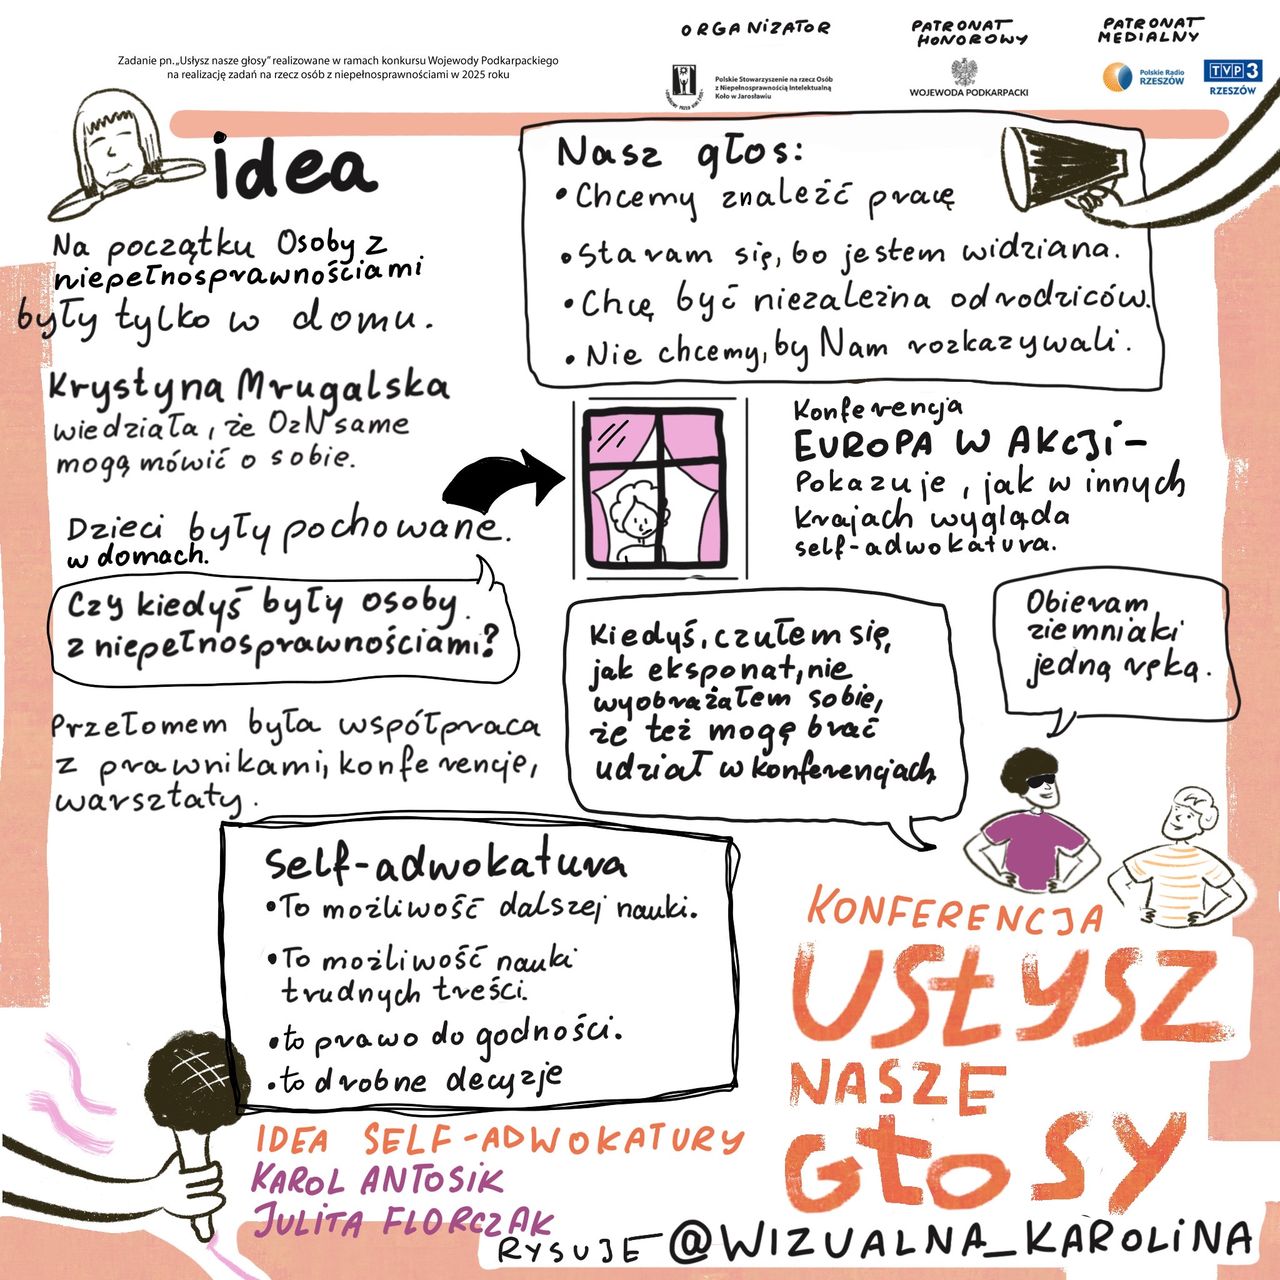 Zadanie pn. „Usłysz nasze głosy" realizowane w ramach konkursu Wojewody Podkarpackiego
na realizację zadań na rzecz osób z niepełnosprawnościami w 2025 roku
ORGANIZATOR
Polskie Stowarzyszenie na rzecz Osób
z Niepełnosprawnością Intelektualną
Koło w Jarosławiu
PATRONAT
HONOROWY
WOJEWODA PODKARPACKI
PATRONAT
MEDIALNY
Polskie Radio
RZESZÓW
TVP3
RZESZÓW
idea
Na początku Osoby z
niepełnosprawnościami
były tylko w domu.
Krystyna Mrugalska
wiedziała, że OzN same
mogą mówić o sobie.
Dzieci były pochowane.
w domach.
Czy kiedyś były osoby
z niepełnosprawnościami?
Przełomem była współpraca
z prawnikami, konferencje,
warsztaty.
Nasz głos:
• Chcemy znaleźć pracę
• Staram się, bo jestem widziana.
• Chcę być niezależna od rodziców.
• Nie chcemy, by Nam rozkazywali.
Konferencja
EUROPA W AKCJI –
Pokazuje, jak w innych
krajach wygląda
self-adwokatura.
Kiedyś, czułem się,
jak eksponat, nie
wyobrażałem sobie,
że też mogę brać
udział w konferencjach
Obieram
ziemniaki
jedną ręką.
Self-adwokatura
• To możliwość dalszej nauki.
• To możliwość nauki
trudnych treści.
• to prawo do godności.
• to drobne decyzje
IDEA SELF-ADWOKATURY
KAROL ANTOSIK
JULITA FLORCZAK
KONFERENCJA
USŁYSZ
NASZE
GŁOSY
RYSUJE @WIZUALNA_KAROLINA